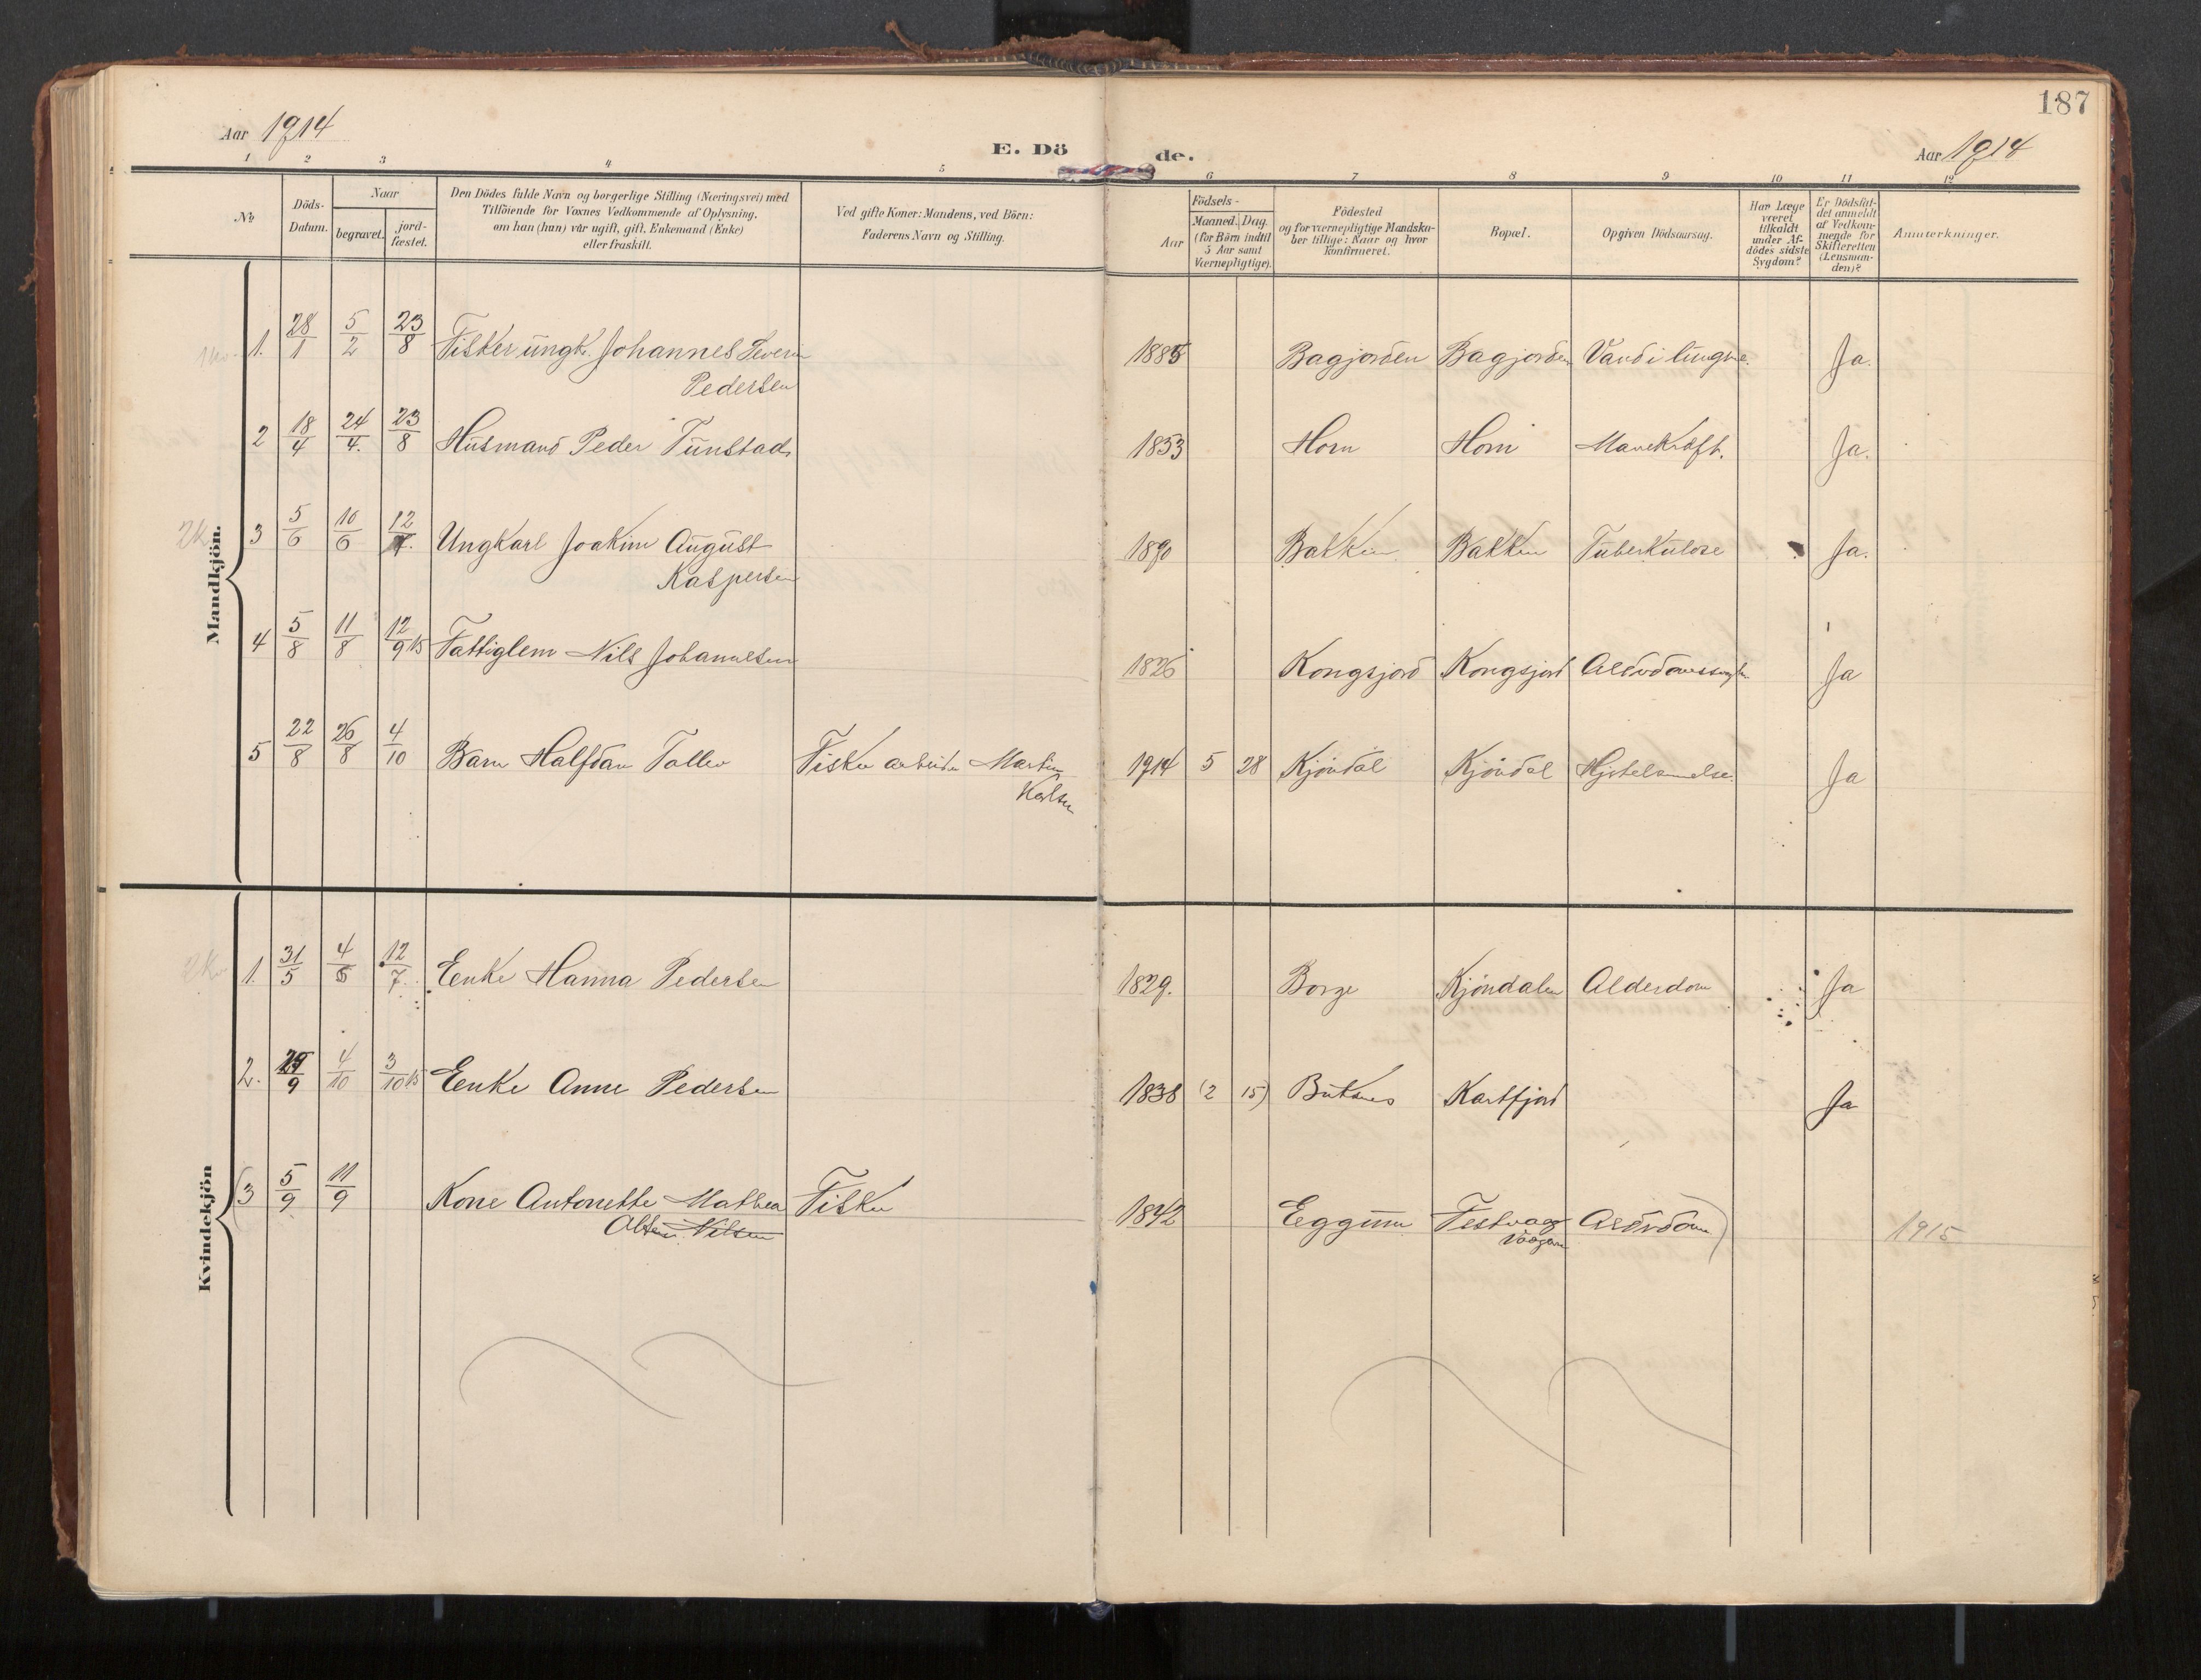 187
Aar 1914
E. Dö
de.
Aar 1914
1 2 3 4 5 6 7 8 9 10 11 12
№
Döds-Datum.
Naar
begravet.
jord-fæstet.
Den Dödes fulde Navn og borgerlige Stilling (Næringsvei) med
Tilföiende for Voxnes Vedkommende af Oplysning,
om han (hun) var ugift, gift, Enkemand (Enke)
eller fraskilt.
Ved gifte Koner: Mandens, ved Börn:
Faderens Navn og Stilling.
Födsels-
Aar
Maaned. Dag.
(for Börn indtil
5 Aar samt
Værnepligtige).
Födested
og for værnepligtige Mandska-
ber tillige: Naar og hvor
konfirmeret.
Bopæl.
Opgiven Dödsaarsag.
Har Læge
været
tilkaldt
under Af-
dödes sidste
Sygdom?
Er Dödsfal-
det anmeldt
af Vedkom-
mende for
Skifteretten
(Lensman-
den)?
Anmærkninger.
Mandkjön.
1. 28/1 5/2 23/8 Fisker ungk. Johannes Severin
Pedersen
1885 Bagjorden Bagjorden Vand i lungene. Ja.
2 18/4 24/4. 23/8 Husmand Peder Tunstad
1853 Horn Horn Mavekræft. Ja.
2k
3 5/6 10/6 12 Ungkarl Joakim August
Kaspersen
1890 Bakken Bakken Tuberkulose Ja.
4 5/8 11/8 12/9 15 Fattiglem Nils Johannesen
1826 Kongsjord Kongsjord Ja
5 22/8 26/8 4/10 Barn Halfdan Tollev Fisker arbeider Martin
Karlsen
1914 5 28 Kjöndal Kjöndal Ja
Kvindekjön
2k
1. 31/5 4 12/7. Eenke Hanna Pedersen
1829. Borge Kjöndalen Alderdom Ja
2. 29/9 4/10 3/10 15 Eenke Anne Pedersen
1838 (2 15) Buksnes Kartfjord Ja
(3 5/9 11/9 Kone Antonette Mathea Fisker
Olsen Nilsen
1842 Eggum Festvaag Alderdom)
Vaagan
1915